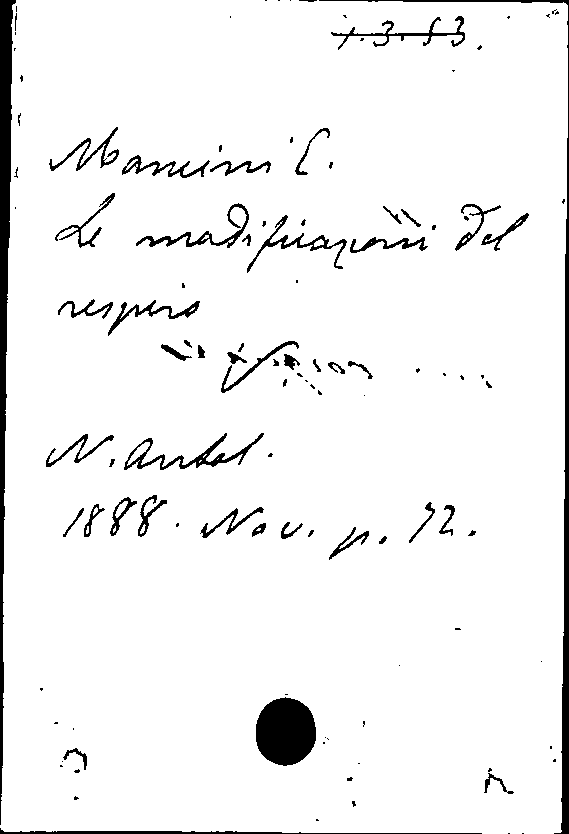 Mancini E.
Le modificazioni del
respiro
N. Antol.
1888. Nov. p. 72.